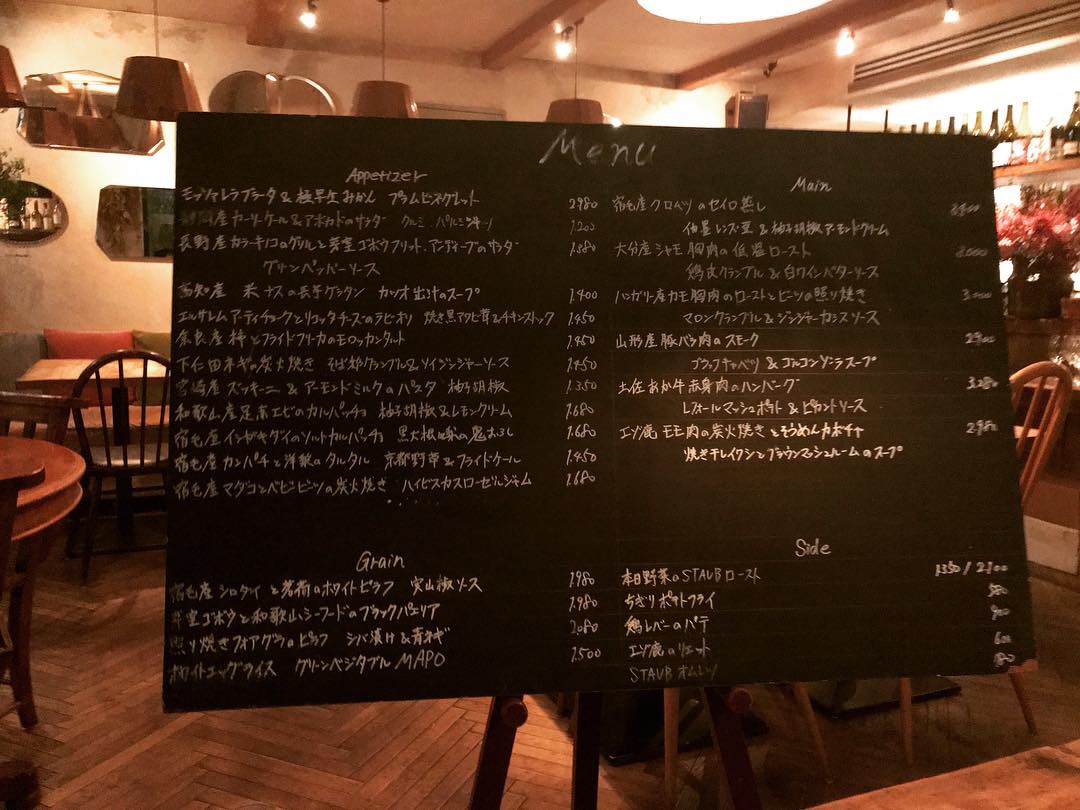 Menu
Appetizer
モッツァレラブラータ & 極早生みかん プラムビネグレット 2980
産カーリーケール&アボカドのサラダ クルミ パルミジャーノ 1.200
長野産カラキノコのグリルと芽室ゴボウフリット アンディーブのサラダ 1.580
グリーンペッパーソース
高知産 米ナスの長芋グラタン カツオ出汁のスープ 1.400
エルサレムアーティチョークとリコッタチーズのラビオリ 焼き黒アワビ茸&チキンストック 1.450
奈良産柿とフライドフリカのモロッカンタルト 1.450
下仁田ネギの炭火焼き そば粉クランブル&ソイジンジャーソース 1.450
宮崎産ズッキーニ&アーモンドミルクのパスタ 柚子胡椒 1.350
和歌山産足赤エビのカルパッチョ 柚子胡椒&レモンクリーム 1.680
宿毛産イシガキダイのソルトカルパッチョ 黒大根の鬼おろし 1.680
宿毛産カンパチと洋梨のタルタル 京都野菜&フライドケール 1.450
宿毛産マダコとベビービーツの炭火焼き ハイビスカスローゼルジャム 1.680
Grain
宿毛産シロダイと茗荷のホワイトピラフ 実山椒ソース 1.980
芽室ゴボウと和歌山シーフードのブラックパエリア 1.980
照り焼きフォアグラのピラフ シバ漬け&青ネギ 2.080
ホワイトエッグライス グリーンベジタブルMAPO 1.500
Main
宿毛産クロムツのセイロ蒸し
白レンズ豆&柚子胡椒アーモンドクリーム
大分産シャモ胸肉の低温ロースト 3.000
鶏皮クランブル&白ワインバターソース
ハンガリー産カモ胸肉のローストとビーツの照り焼き 3.000
マロンクランブル&ジンジャーカシスソース
山形産豚バラ肉のスモーク
ブラックキャベツ&ゴルゴンゾーラスープ
土佐あか牛赤身肉のハンバーグ 3.280
レフォールマッシュポテト&ピカントソース
エゾ鹿モモ肉の炭火焼きとそうめんカボチャ 2.980
焼き干レイクシとブラウンマッシュルームのスープ
Side
本日野菜のSTAUBロースト 1350/2100
ちぎりポテトフライ 580
鶏レバーのパテ 900
エゾ鹿のリエット
STAUBオムレツ